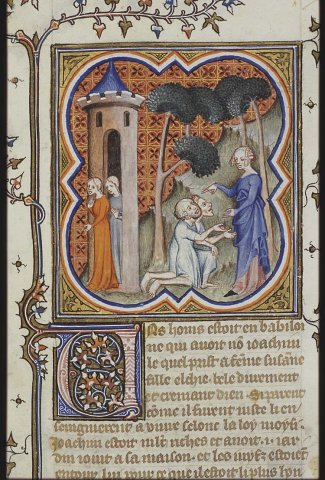 Uns homs estoit en babiloi
ne qui avoit nõ ioachim
le quel prist a fẽme susãne
fille elchie. bele durement
 cremant dieu. 
cõme il furent iuste li en
seignierent a vivre selonc la loy moysi.
Ioachim estoit mlt riches et avoit .i. iar
din ioint a sa maison. et les iuys estoiẽt
entour lui pour ce que il estoit li plus hon